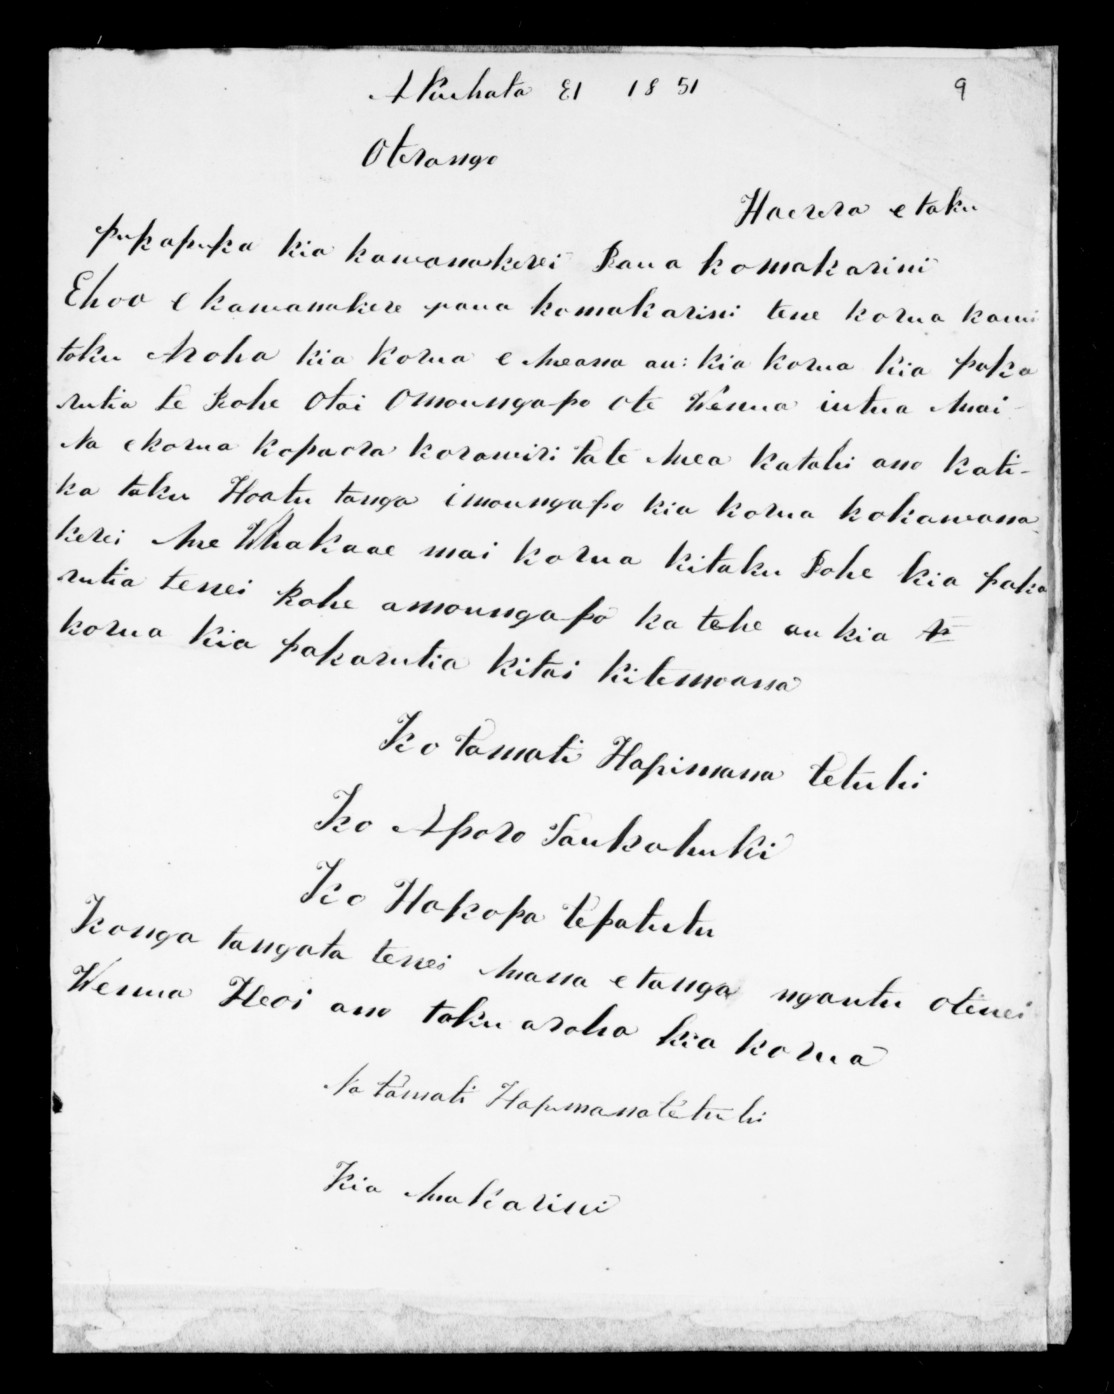 Akuhata 21 1851
9
Oterango
Haerera e taku
pukapuka kia kawanakerei Raua komakarini
Ehoa e kawanakere raua komakarini tene korua kanui
toku Aroha kia korua e Meana au: kia korua kia paka
rutia te Rohe Otai Omoungapo ote Wenua iutua Mai
Na ekorua kopaora koramiri Tate Mea katahi ano kati-
ka taku Hoatu tanga imoungapo kia korua kokawana
kerei Me Whakaae mai korua kitaku Rohe kia paka
rutia tenei Rohe amoungapo ka tehe au kia
korua kia pakarutia kitai kitemoana
Ko Tamati Hapimana Tetuhi
Ko Aporo Taukahuki
Ko Hakopa Tepatutu
Konga tangata tenei Mana e tanga ngautu otenei
Wenua Heoi ano taku aroha kia korua
Na Tamati Hapimana Tetuhi
Kia Makarini